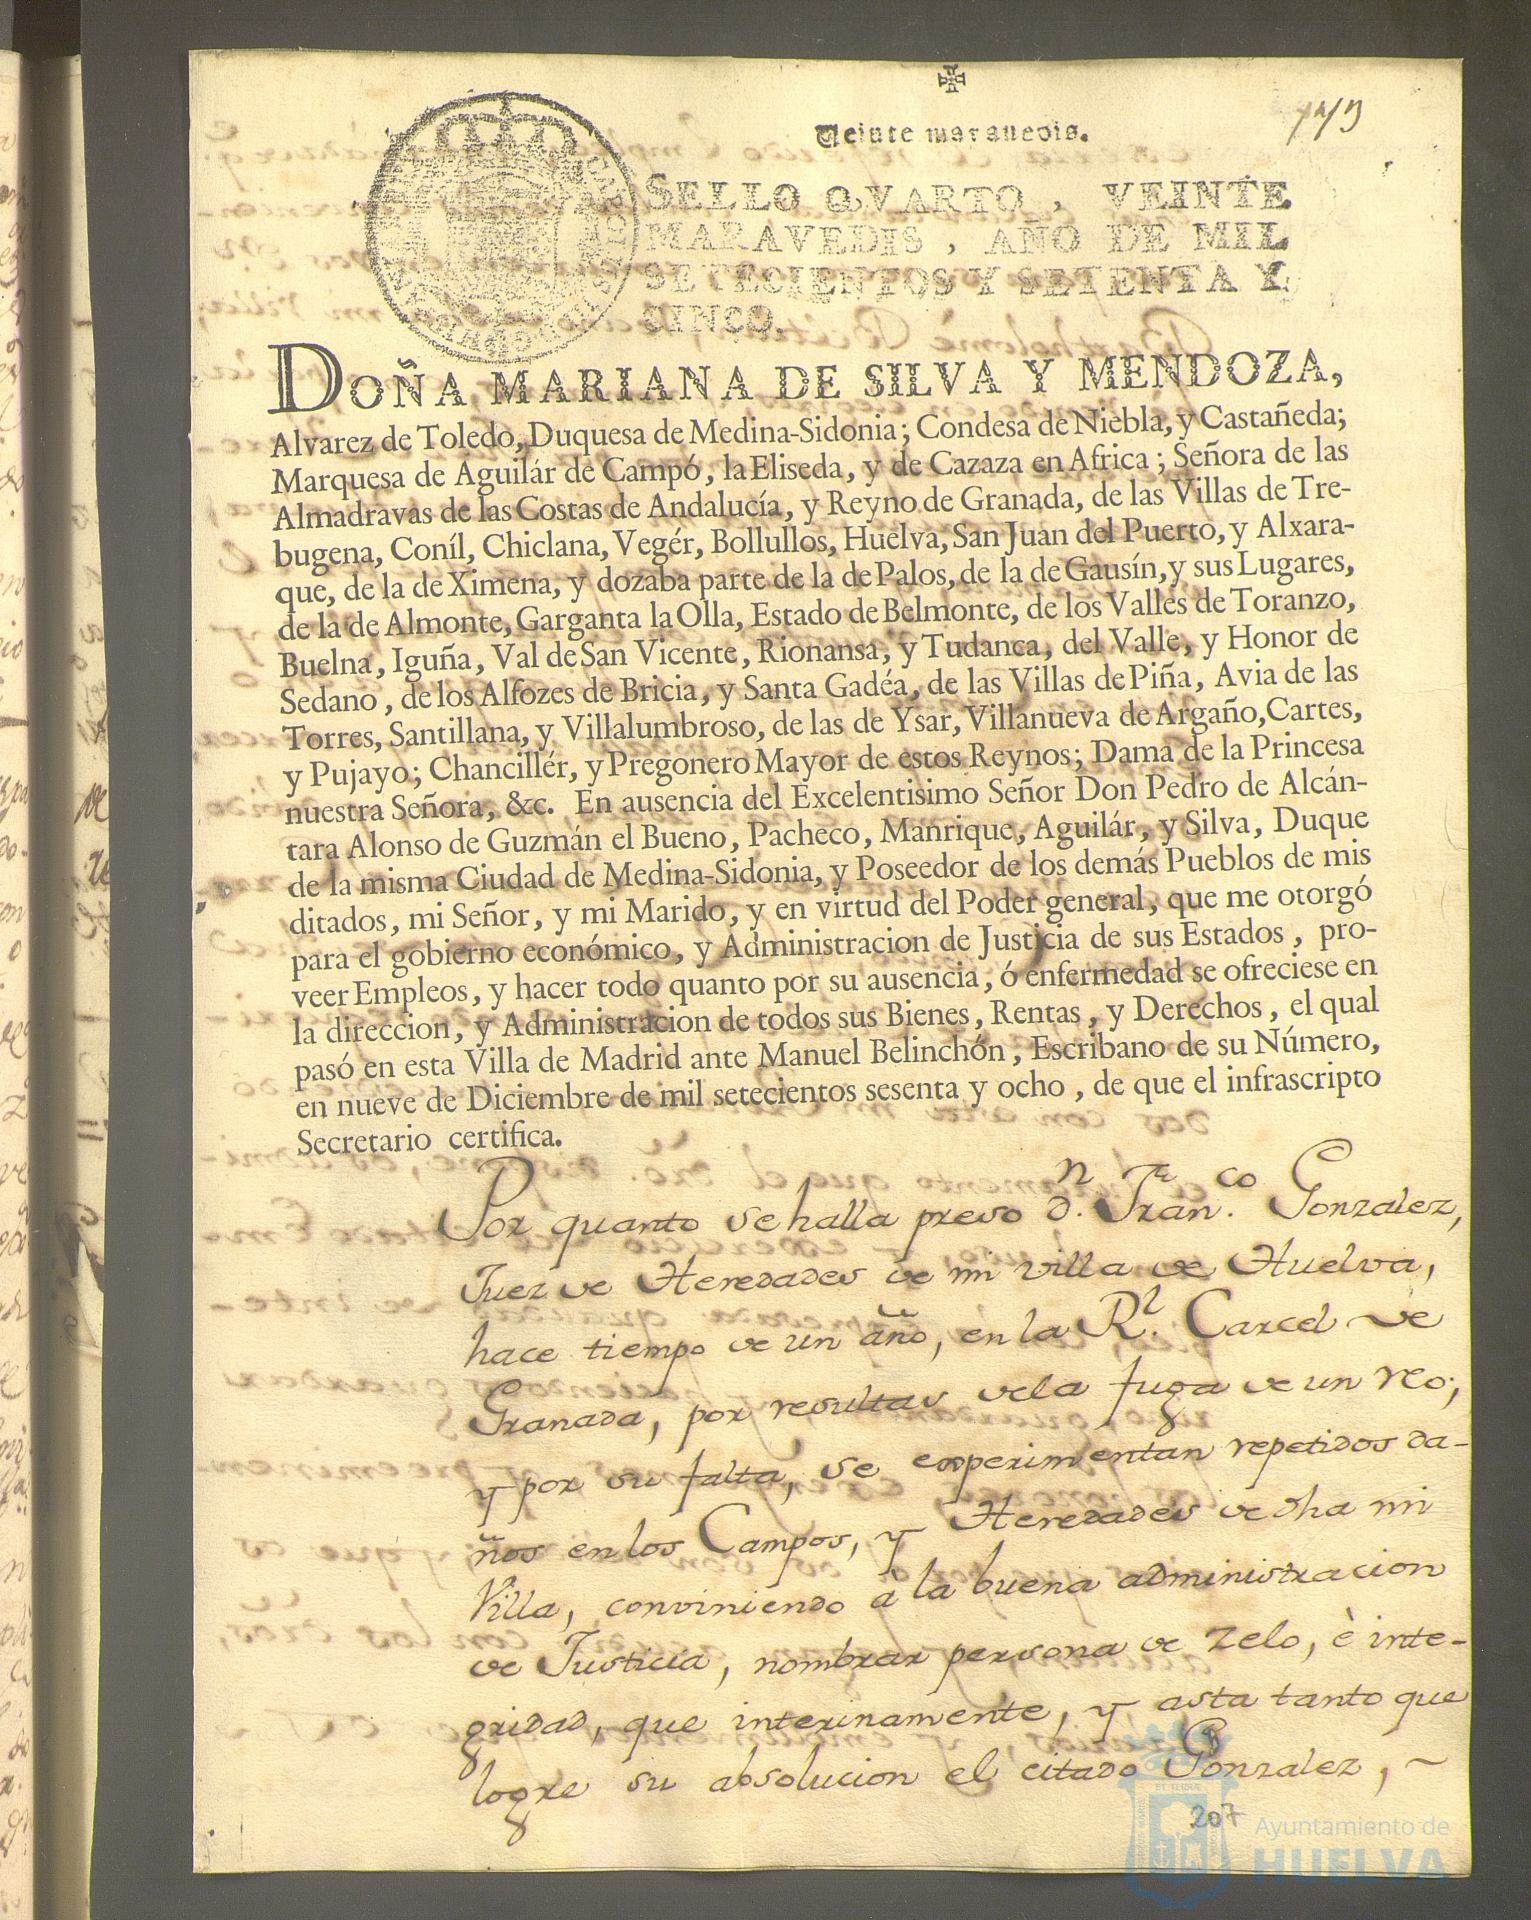 Veinte maravedis.
SELLO QVARTO, VEINTE
MARAVEDIS, AÑO DE MIL
SETECIENTOS Y SETENTA Y
CINCO.
DOÑA MARIANA DE SILVA Y MENDOZA,
Alvarez de Toledo, Duquesa de Medina-Sidonia; Condesa de Niebla, y Castañeda;
Marquesa de Aguilár de Campó, la Eliseda, y de Cazaza en Africa; Señora de las
Almadravas de las Costas de Andalucía, y Reyno de Granada, de las Villas de Tre-
bugena, Coníl, Chiclana, Vegér, Bollullos, Huelva, San Juan del Puerto, y Alxara-
que, de la de Ximena, y dozaba parte de la de Palos, de la de Gausín, y sus Lugares,
de la de Almonte, Garganta la Olla, Estado de Belmonte, de los Valles de Toranzo,
Buelna, Iguña, Val de San Vicente, Rionansa, y Tudanca, del Valle, y Honor de
Sedano, de los Alfozes de Bricia, y Santa Gadéa, de las Villas de Piña, Avia de las
Torres, Santillana, y Villalumbroso, de las de Ysar, Villanueva de Argaño, Cartes,
y Pujayo; Chancillér, y Pregonero Mayor de estos Reynos; Dama de la Princesa
nuestra Señora, &c. En ausencia del Excelentisimo Señor Don Pedro de Alcán-
tara Alonso de Guzmán el Bueno, Pacheco, Manrique, Aguilár, y Silva, Duque
de la misma Ciudad de Medina-Sidonia, y Poseedor de los demás Pueblos de mis
ditados, mi Señor, y mi Marido, y en virtud del Poder general, que me otorgó
para el gobierno económico, y Administracion de Justicia de sus Estados, pro-
veer Empleos, y hacer todo quanto por su ausencia, ó enfermedad se ofreciese en
la direccion, y Administracion de todos sus Bienes, Rentas, y Derechos, el qual
pasó en esta Villa de Madrid ante Manuel Belinchón, Escribano de su Número,
en nueve de Diciembre de mil setecientos sesenta y ocho, de que el infrascripto
Secretario certifica.
Por quanto se halla preso d.n Fran.co Gonzalez,
Juez de Heredades de mi villa de Huelva,
hace tiempo de un año, en la R.l Carcel de
Granada, por resultas de la fuga de un reo;
y por su falta, se experimentan repetidos da-
ños en los Campos, y Heredades de dha mi
Villa, conviniendo à la buena administracion
de Justicia, nombrar persona de zelo, è inte-
gridad, que interinamente, y asta tanto que
logre su absolucion el citado Gonzalez, ~
207
Ayuntamiento de
HUELVA